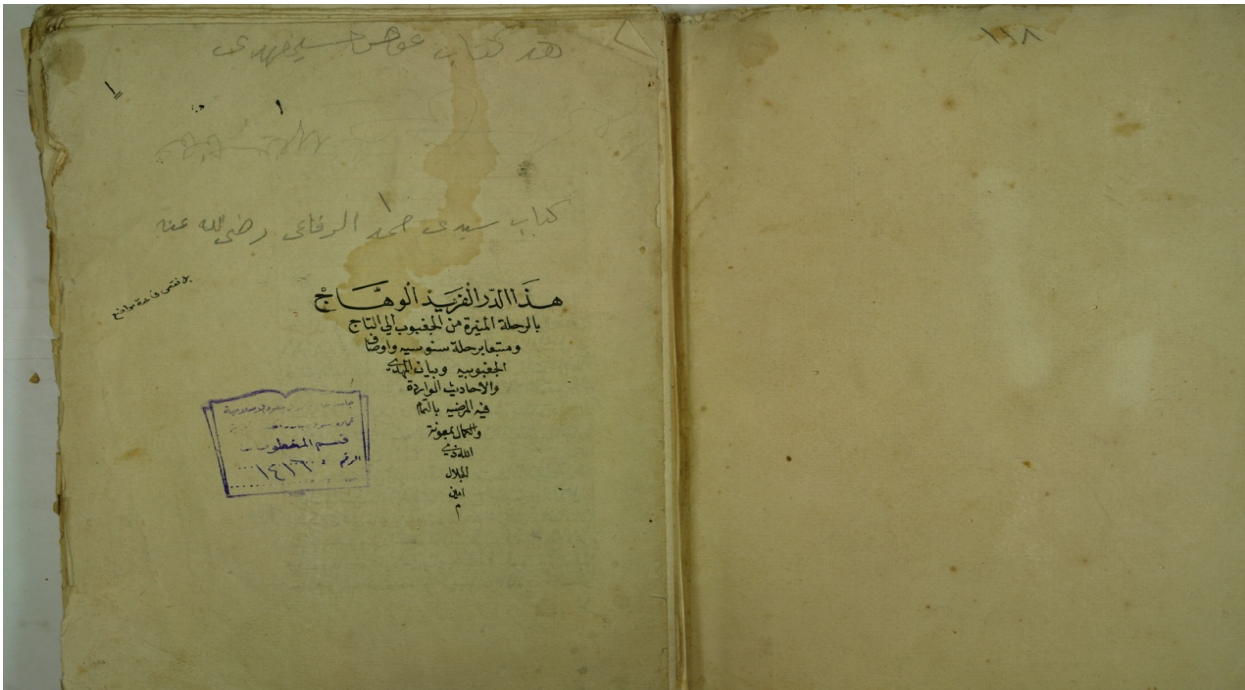 ١١٨
هذ كتاب
١
١
كتاب سيدى احمد الرفاعى رضى الله عنه
هذا الدر الفريد الوهاج
بالرحلة المنيرة من الجغبوب الى التاج
ومتبعا برحلة سنوسيه واوصاف
الجغبوبيه وبيان المهدى
والاحاديث الواردة
فيه المرضيه بالتمام
والكمال بمعونة
الله ذى
الجلال
امين
م
قسم المخطوطات
الرقم ١٤١٦